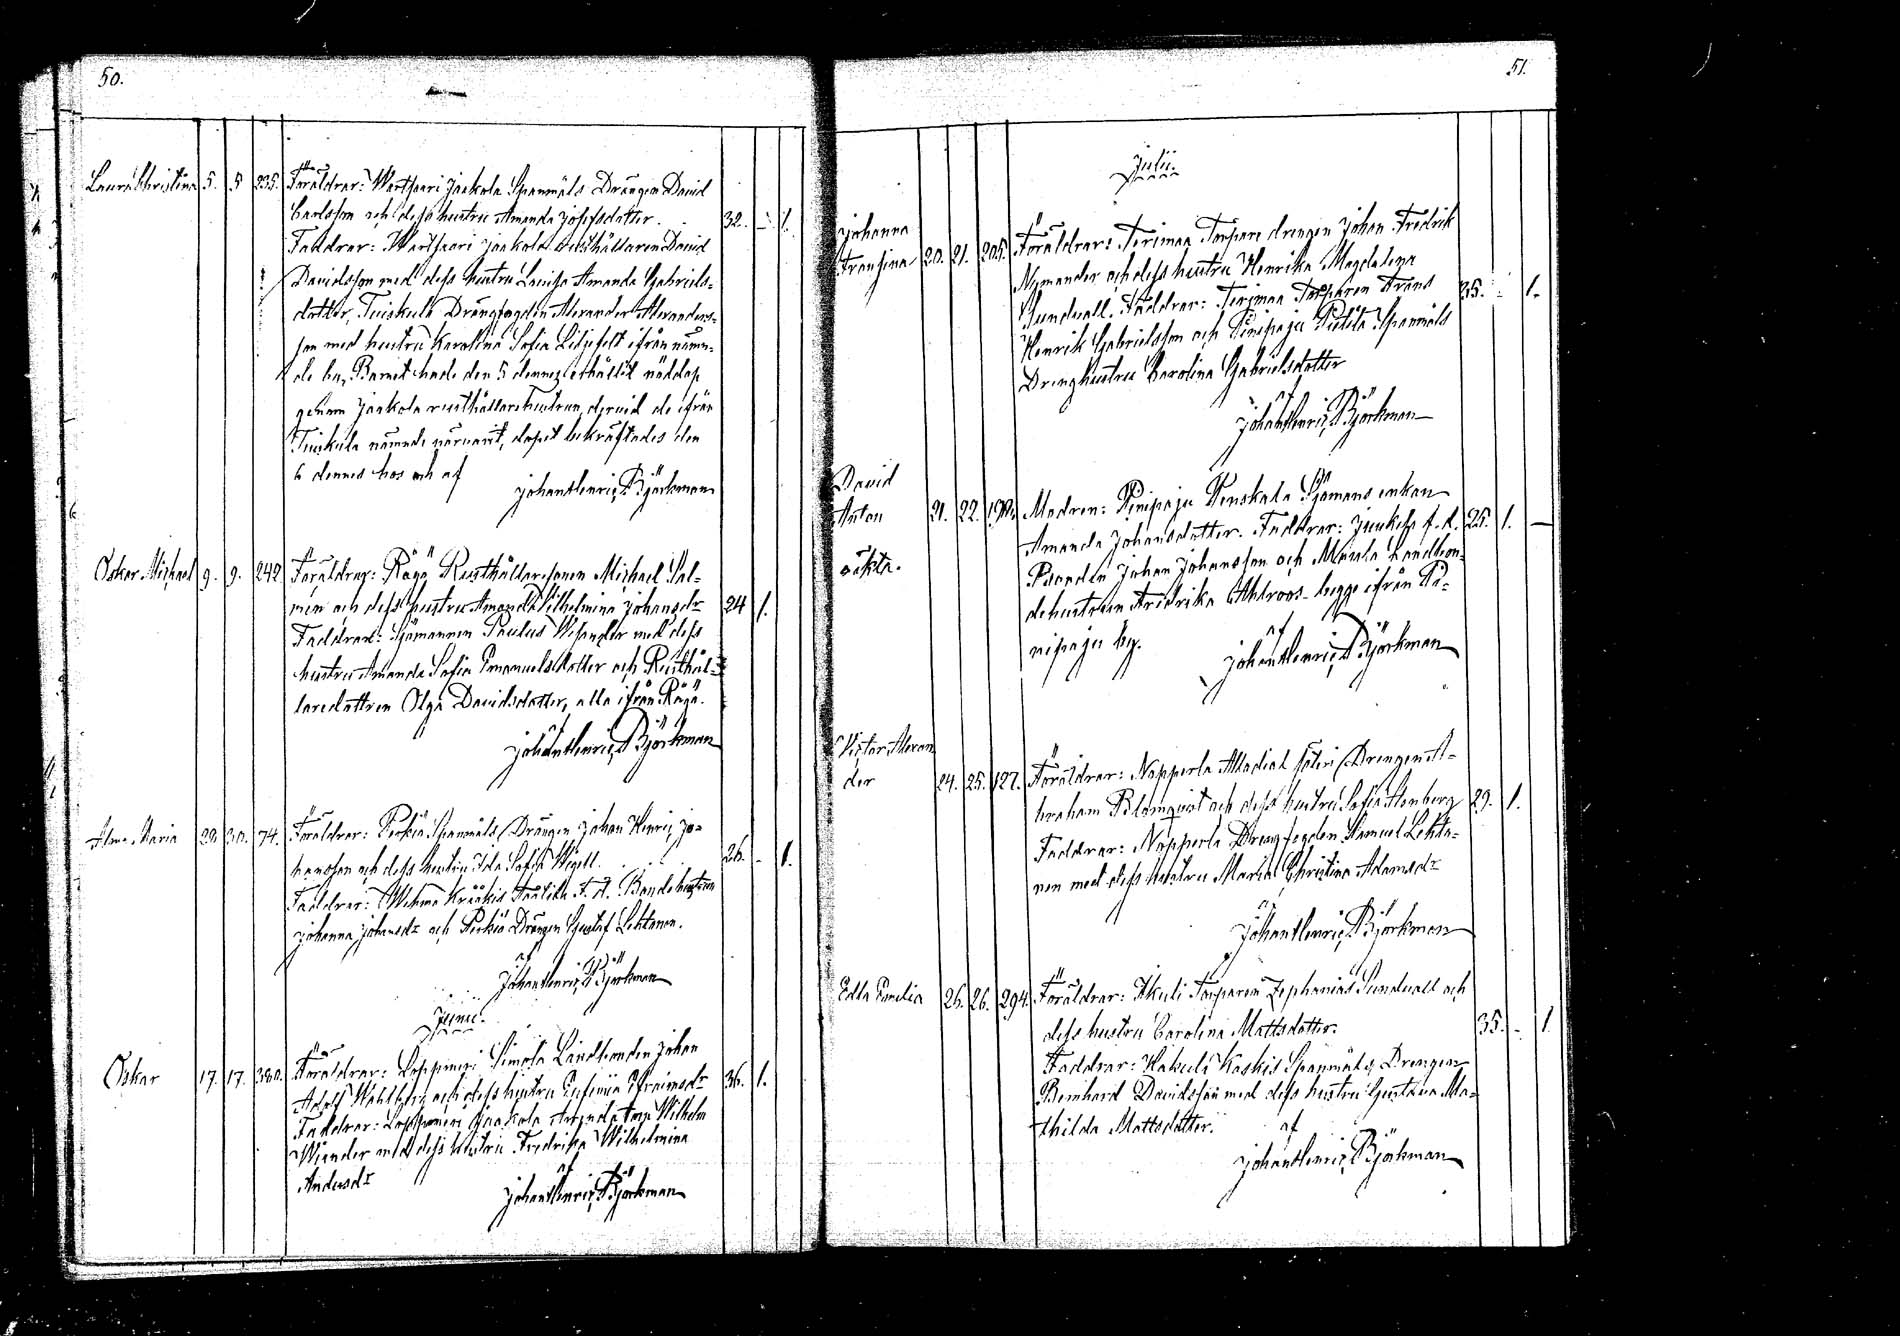 50.
Laura Christina 5. 5 235. Föräldrar: Wartsaari Jaakola Spanmåls Drängen David
Carlsson och dess hustru Amanda Josefsdotter. 32. - 1.
Faddrar: Wartsaari Jaakola Rusthållaren David
Davidsson med dess hustru Lovisa Amanda Gabriels-
dotter, Tuiskula Drängfogden Alexander Alexanders-
son med hustru Karolina Sofia Liljefelt ifrån nämn-
de by, Barnet hade den 5 dennes erhållit nöddop
genom Jaakola rusthållarehustrun, dervid de ifrån
Tuiskula nämnde närvarit, dopet bekräftades den
6 dennes hos och af Johan Henric Björkman
Oskar Michael 9. 9. 242 Föräldrar: Röyä Rusthållaresonen Michael Sal-
men och dess hustru Amanda Vilhelmina Johansdr 24 1.
Faddrar: Sjömannen Paulus Wesander med dess
hustru Amanda Sofia Emanuelsdotter och Rusthål-
laredottren Olga Davidsdotter, alla ifrån Röyä.
af Johan Henric Björkman
Alma Maria 28 30. 74. Föräldrar: Perkiö Spanmåls Drängen Johan Henric Jo-
hansson och dess hustru Ida Sofia Wigell. 26. - 1.
Faddrar: Wehmo Krääkis F. d. Bondehustrun
Johanna Johansdr och Perkiö Drängen Gustaf Lehtonen.
af
Johan Henric Björkman
Junii.
Oskar 17. 17. 380. Föräldrar: Loppmeri Simola Landbonden Johan
Adolf Wahlberg och dess hustru Eufemia Efraimsdr 36. 1.
Faddrar: Loppmeri Jaakola Wilhelm
Wiander med dess hustru Fredrika Wilhelmina
Andersdr af
Johan Henric Björkman
51.
Julii.
Johanna
Fransina 20. 21. 205. Föräldrar: Terimaa Torpare drengen Johan Fredrik
Nymander och dess hustru Henrika Magdalena
Sundvall. Faddrar: Terimaa Torparen Frans 35. - 1.
Henrik Gabrielsson och Pinipaju Spanmåls
Drenghustru Carolina Gabrielsdotter
af
Johan Henric Björkman
David
Anton 21. 22. Modren: Pinipaju Penskala Sjömans enkan
Amanda Johansdotter. Faddrar: f. d. 25. 1. -
oäkta. Bonden Johan Johansson och landbon-
dehustrun Fredrika Ahlroos begge ifrån Pi-
nipaju by. af
Johan Henric Björkman
Victor Alexan
der 24. 25. 127. Föräldrar: Nopperla Alladial säteri Drengen A-
braham Blomqvist och dess hustru Sofia Stenberg 29. 1.
Faddrar: Nopperla Drengfogden Samuel Lehto-
nen med dess hustru Maria Christina Adamsdr
af
Johan Henric Björkman
Edla Emelia 26. 26. 294. Föräldrar: Torparen Zephanias Sundvall och
dess hustru Carolina Mattsdotter. 35. - 1.
Faddrar: Hakuli Koskis Spanmåls Drengen
Bernhard Davidsson med dess hustru Gustava Ma-
thilda Mattsdotter. af
Johan Henric Björkman